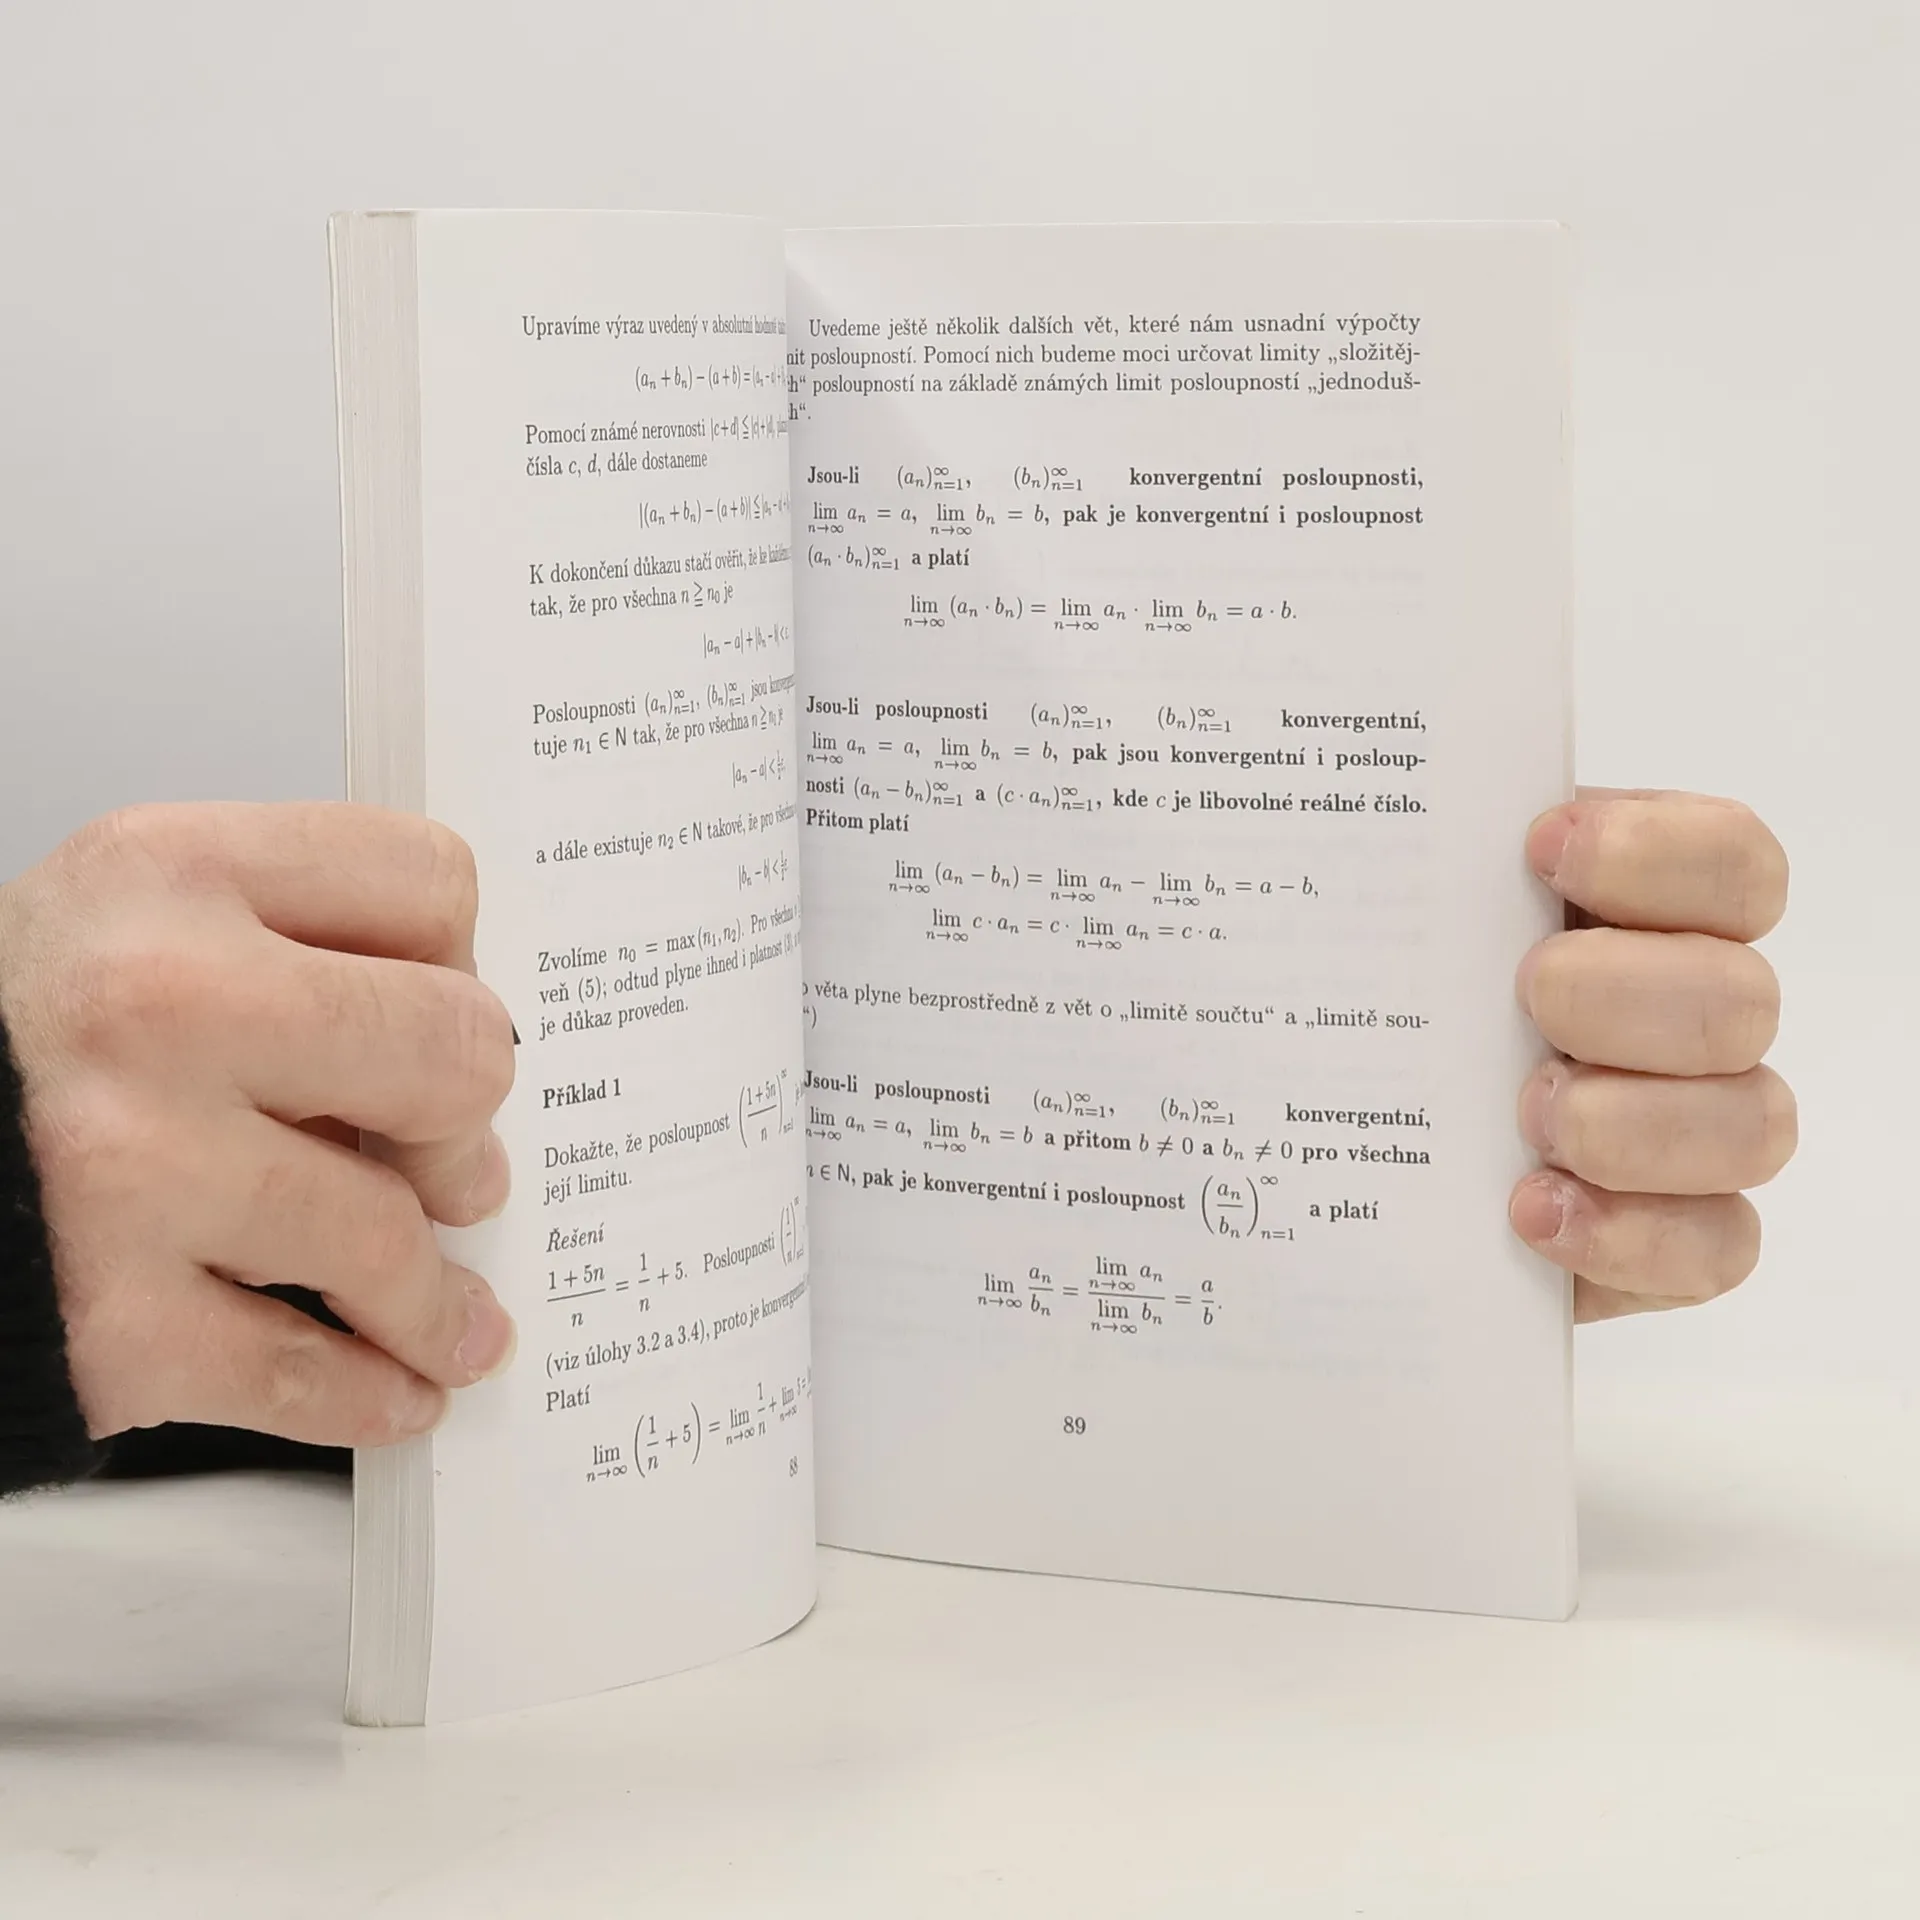 Upravíme výraz uvedený v absolutní hodnotě
(aₙ + bₙ) − (a + b) = (aₙ − a) +
Pomocí známé nerovnosti |c + d| ≦ |c| + |d|,
čísla c, d, dále dostaneme
|(aₙ + bₙ) − (a + b)| ≦ |aₙ − a| +
K dokončení důkazu stačí ověřit, že ke každému
tak, že pro všechna n ≧ n₀ je
|aₙ − a| + |bₙ − b| < ε.
Posloupnosti (aₙ)ₙ₌₁^∞, (bₙ)ₙ₌₁^∞ jsou
tuje n₁ ∈ N tak, že pro všechna n ≧ n₁ je
|aₙ − a| < ½ε,
a dále existuje n₂ ∈ N takové, že pro všechna
|bₙ − b| < ½ε.
Zvolíme n₀ = max(n₁, n₂). Pro všechna n
veň (5); odtud plyne ihned i platnost (3),
je důkaz proveden.
Příklad 1
Dokažte, že posloupnost ((1 + 5n)/n)ₙ₌₁^∞ je
její limitu.
Řešení
(1 + 5n)/n = 1/n + 5. Posloupnosti (1/n)ₙ₌₁^∞,
(viz úlohy 3.2 a 3.4), proto je konvergentní
Platí
lim_{n→∞} (1/n + 5) = lim_{n→∞} 1/n + lim_{n→∞} 5 =
88
Uvedeme ještě několik dalších vět, které nám usnadní výpočty
mit posloupností. Pomocí nich budeme moci určovat limity „složitěj-
h“ posloupností na základě známých limit posloupností „jednoduš-
h“.
Jsou-li (aₙ)ₙ₌₁^∞, (bₙ)ₙ₌₁^∞ konvergentní posloupnosti,
lim_{n→∞} aₙ = a, lim_{n→∞} bₙ = b, pak je konvergentní i posloupnost
(aₙ · bₙ)ₙ₌₁^∞ a platí
lim_{n→∞} (aₙ · bₙ) = lim_{n→∞} aₙ · lim_{n→∞} bₙ = a · b.
Jsou-li posloupnosti (aₙ)ₙ₌₁^∞, (bₙ)ₙ₌₁^∞ konvergentní,
lim_{n→∞} aₙ = a, lim_{n→∞} bₙ = b, pak jsou konvergentní i posloup-
nosti (aₙ − bₙ)ₙ₌₁^∞ a (c · aₙ)ₙ₌₁^∞, kde c je libovolné reálné číslo.
Přitom platí
lim_{n→∞} (aₙ − bₙ) = lim_{n→∞} aₙ − lim_{n→∞} bₙ = a − b,
lim_{n→∞} c · aₙ = c · lim_{n→∞} aₙ = c · a.
o věta plyne bezprostředně z vět o „limitě součtu“ a „limitě sou-
“)
Jsou-li posloupnosti (aₙ)ₙ₌₁^∞, (bₙ)ₙ₌₁^∞ konvergentní,
lim_{n→∞} aₙ = a, lim_{n→∞} bₙ = b a přitom b ≠ 0 a bₙ ≠ 0 pro všechna
n ∈ N, pak je konvergentní i posloupnost (aₙ/bₙ)ₙ₌₁^∞ a platí
lim_{n→∞} aₙ/bₙ = (lim_{n→∞} aₙ)/(lim_{n→∞} bₙ) = a/b.
89